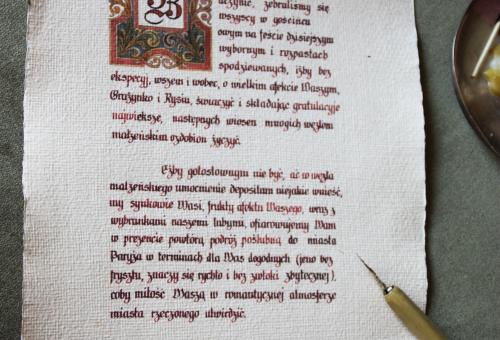 B
uczynić, zebraliśmy się
wszyscy w gościnen
owym na feście dzisiejszym
wybornym i rozpastach
spodziewanych, iżby bez
ekspecyj, wszem i wobec, o wielkim afekcie Waszym,
Grażynko i Rysiu, świarczyć i składając gratulacyje
największe, następnych wiosen mnogich węzłom
małżeńskim ozdobion życzyć.
Eżby gołosłownym nie być, ać w węzła
małżeńskiego umocnienie depositum niejakie wnieść,
my synkowie Wasi, frukty afektu Waszego, wraz z
wybrankami naszemi lubymi, ofiarowujemy Wam
w prezencie powtórą podróż poślubną do miasta
Paryża w terminach dla Was dogodnych (jeno bez
fryszty, znaczy się rychło i bez zwłoki zbytecznej),
coby miłość Waszą w romantycznej atmosferze
miasta rzeczonego utwirdzić.